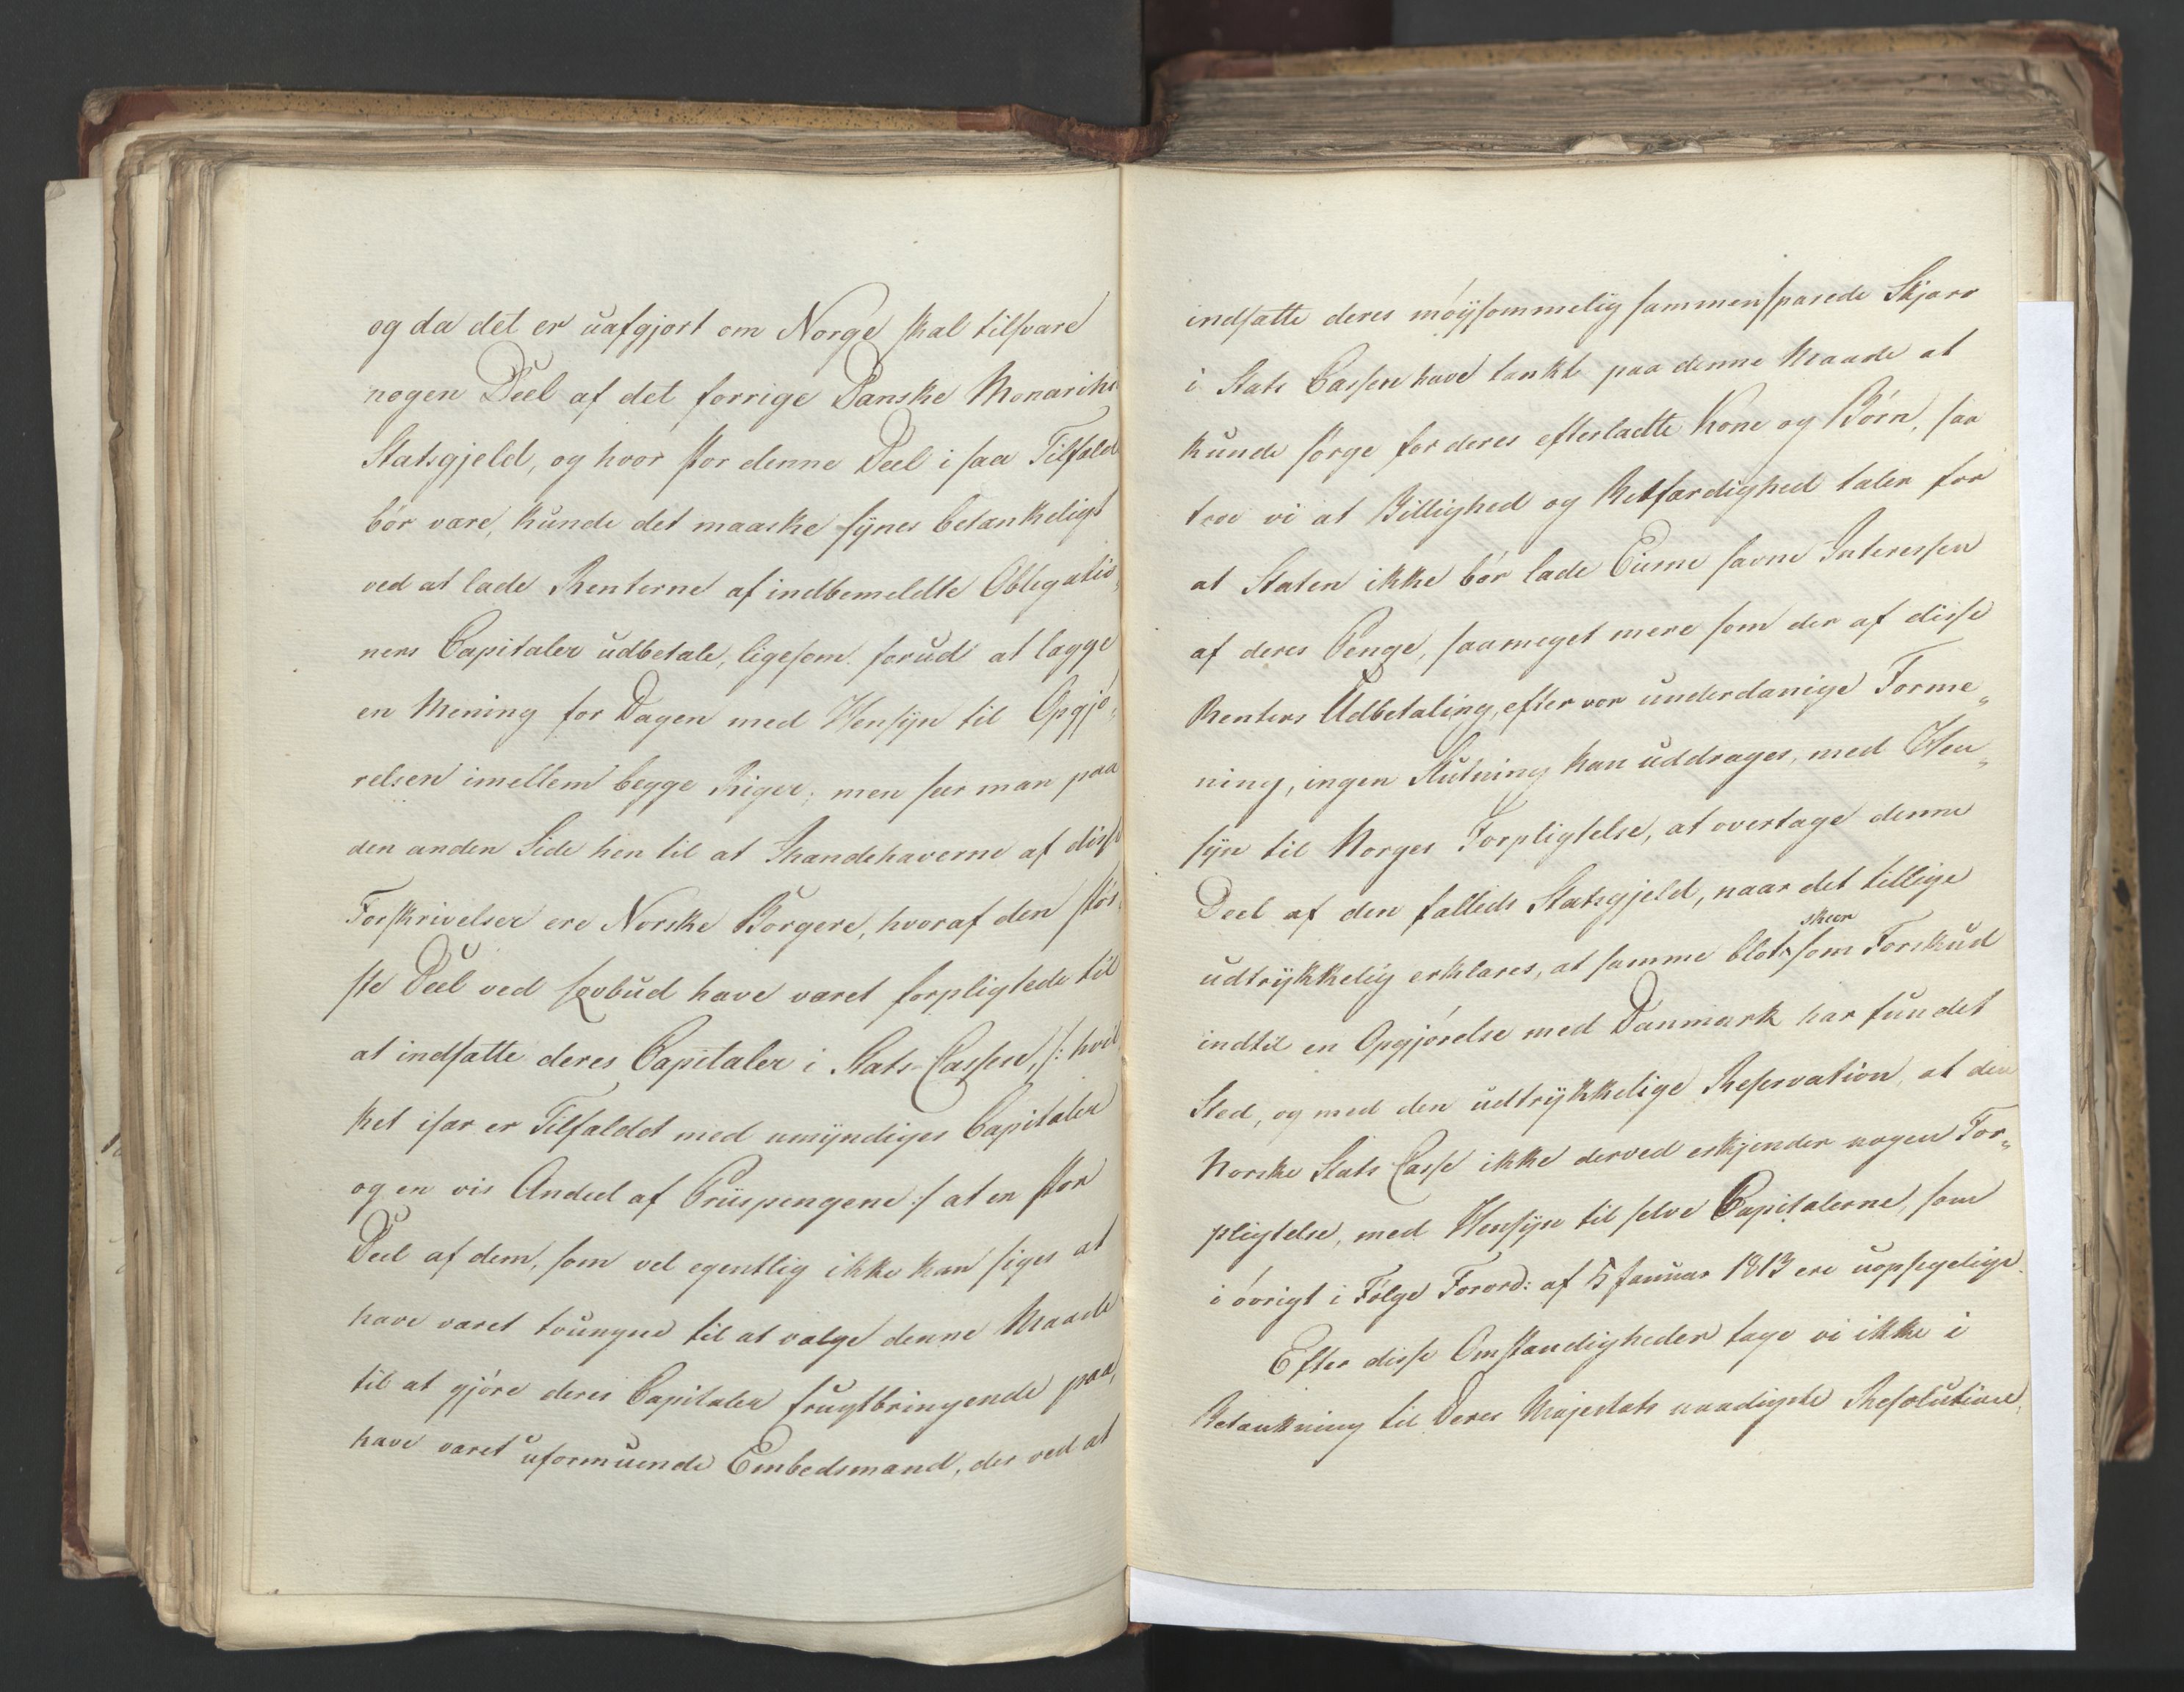 og da det er uafgjort om Norge skal tilsvare
nogen Deel af det forrige Danske Monarikes
Statsgjeld, og hvor stor denne Deel i saa Tilfælde
bør være, kunde det maaskee synes betænkeligt
ved at lade Renterne af indbemeldte Obligatio„
ners Capitaler udbetale, ligesom forud at lægge
en Mening for Dagen med Hensyn til Opgjø„
relsen imellem begge Riger; men seer man paa
den anden Side hen til at Ihændehaverne af disse
Forskrivelser ere Norske Borgere, hvoraf den stør„
ste Deel ved Lovbud have været forpligtede til
at indsætte deres Capitaler i Stats-Cassen, /: hvil„
ket især er Tilfældet med umyndiges Capitaler
og en vis Andeel af Priispengene :/ at en stor
Deel af dem, som vel egentlig ikke kan siges at
have været tvungne til at vælge denne Maade
til at gjøre deres Capitaler frugtbringende paa,
have været uformuende Embedsmænd, der ved at
indsætte deres møysommelig sammensparede Skjærv
i Stats Cassen have tænkt paa denne Maade at
kunde sørge for deres efterladte Kone og Børn, saa
troe vi at Billighed og Retfærdighed taler for
at Staten ikke bør lade Eierne savne Interessen
af deres Penge, saameget mere som der af disse
Renters Udbetaling, efter vor underdanige Forme„
ning, ingen Slutning kan uddrages, med Hen„
syn til Norges Forpligtelse, at overtage denne
Deel af den fælleds Statsgjeld, naar det tillige
udtrykkelig erklæres, at samme blot skeer som Forskud
indtil en Opgjørelse med Danmark har fundet
Sted, og med den udtrykkelige Reservation, at den
Norske Stats Casse ikke derved erkjender nogen For„
pligtelse, med Hensyn til selve Capitalerne, som
i øvrigt i Følge Forord: af 5 Januar 1813 ere uopsigelige.
Efter disse Omstændigheder tage vi ikke i
Betænkning til Deres Majestæts naadigste Resolution,